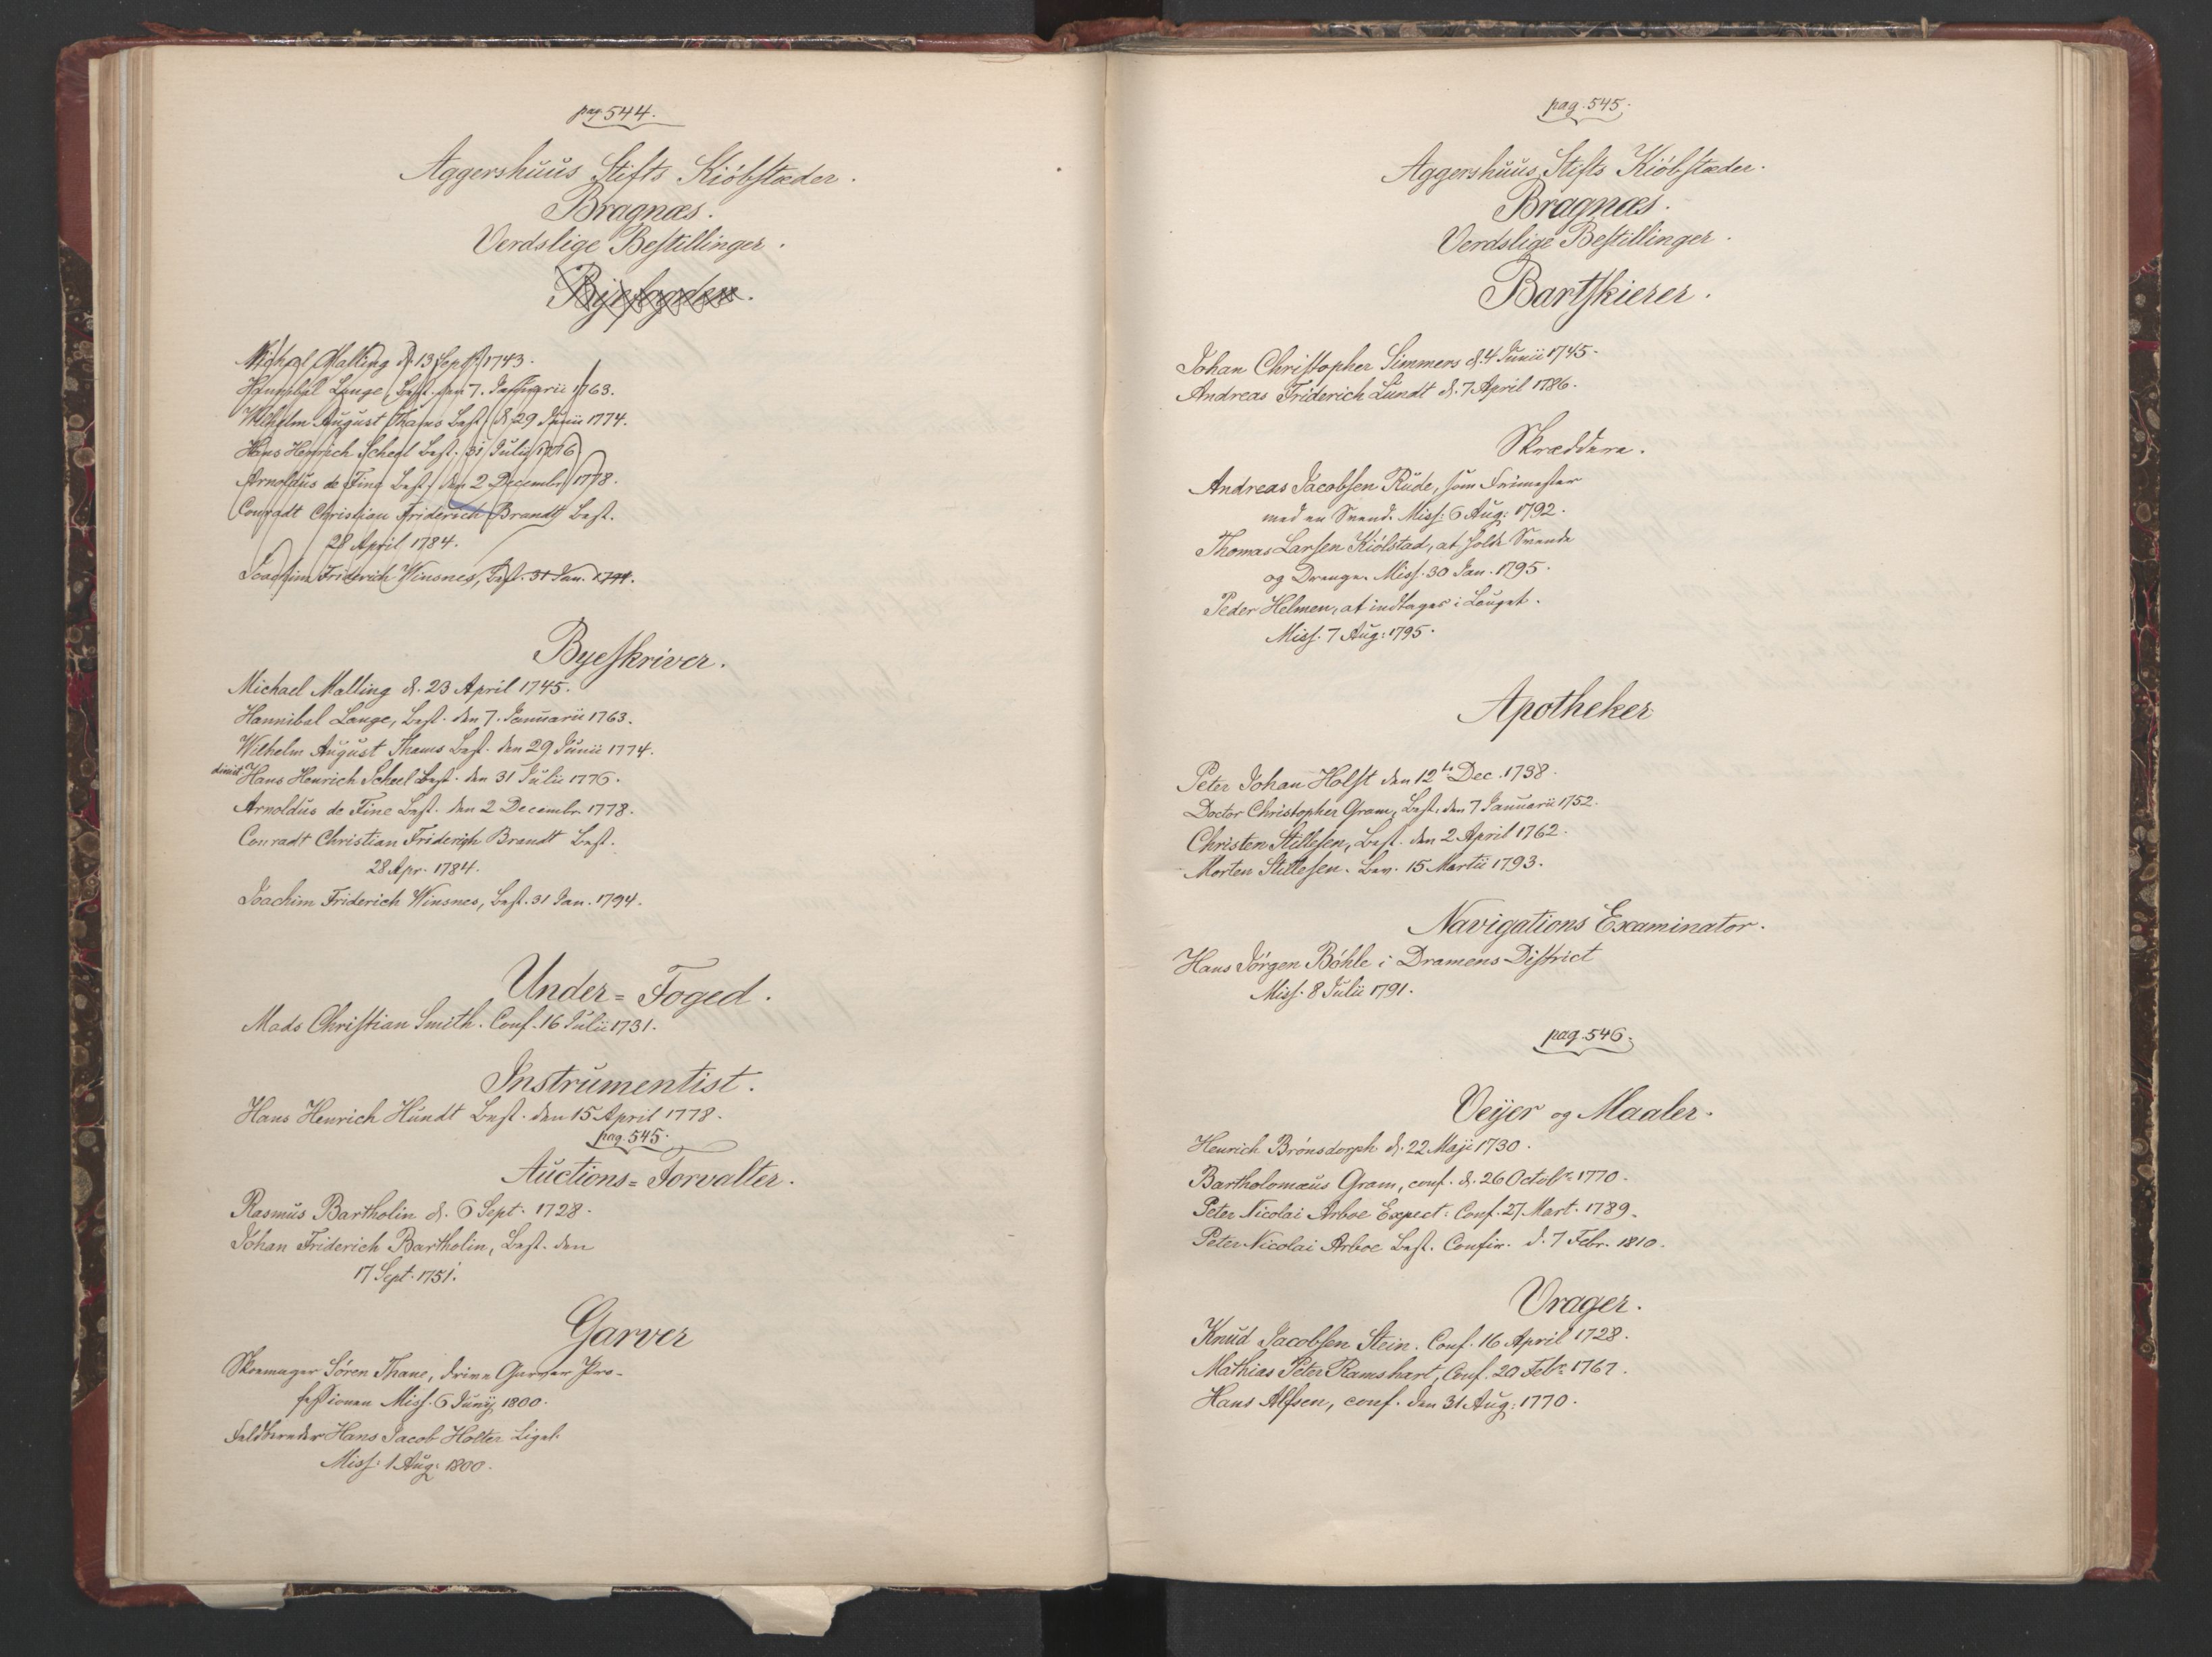 pag. 544.
Aggershuus Stifts Kiöbstæder.
Bragnæs.
Verdslige Bestillinger.
Byefogden.
Michael Malling d. 13 Septbr 1743.
Hannibal Lange, Best. den 7. Januarii 1763.
Wilhelm August Thams Best. d. 29 Junii 1774.
Hans Henrich Scheel Best. 31 Julii 1776.
Arnoldus de Fine Best. den 2 Decembr. 1778.
Conradt Christian Friderich Brandt Best.
28 April 1784.
Joachim Friderich Winsnes, Best. 31 Jan. 1794.
Byeskriver.
Michael Malling d. 23 April 1745.
Hannibal Lange, Best. den 7. Januarii 1763.
Wilhelm August Thams Best. den 29 Junii 1774.
dimit Hans Henrich Scheel Best. den 31 Julii 1776.
Arnoldus de Fine Best. den 2 Decembr. 1778.
Conradt Christian Friderich Brandt Best.
28 Apr. 1784.
Joachim Friderich Winsnes, Best. 31 Jan. 1794.
Under=Foged.
Mads Christian Smith. Conf. 16 Julii 1731.
Instrumentist.
Hans Henrich Hundt Best. den 15 April 1778.
pag. 545.
Auctions=Forvalter.
Rasmus Bartholin d. 6 Sept. 1728.
Johan Friderich Bartholin, Best. den
17 Sept. 1751.
Garver
Skomager Sören Thane, drive Garver Pro-
fessionen Miss. 6 Junij 1800.
Feldbereder Hans Jacob Holter Liget.
Miss: 1 Aug: 1800.
pag. 545.
Aggershuus Stifts Kiöbstæder.
Bragnæs.
Verdslige Bestillinger.
Bartskierer.
Johan Christopher Simmers d. 4 Junii 1745.
Andreas Friderich Lundt d. 7 April 1786.
Skræddere.
Andreas Jacobsen Rude, som Frimester
med en Svend. Miss: 6 Aug: 1792.
Thomas Larsen Kiölstad, at holde Svende
og Drenge. Miss. 30 Jan. 1795.
Peder Helmen, at indtages i Lauget.
Miss. 7 Aug: 1795.
Apotheker
Peter Johan Holst den 12te Dec. 1738.
Doctor Christopher Gram, Best. den 7 Januarii 1752.
Christen Stillesen, Best. den 2 April 1762.
Morten Stillesen. Bev. 15 Martii 1793.
Navigations Examinator.
Hans Jörgen Böhle i Dramens District
Miss. 8 Julii 1791.
pag. 546.
Veijer og Maaler.
Henrich Brönsdorph d. 22 Maji 1730.
Bartholomæus Gram, conf. d. 26 Octobr. 1770.
Peter Nicolai Arboe Expect: Conf. 27 Mart. 1789.
Peter Nicolai Arboe Best. Confir. d. 7 Febr. 1810.
Vrager.
Knud Jacobsen Stein. Conf. 16 April 1728.
Mathias Peter Ramshart, Conf. 20 Febr. 1767.
Hans Alfsen, conf. den 31 Aug: 1770.